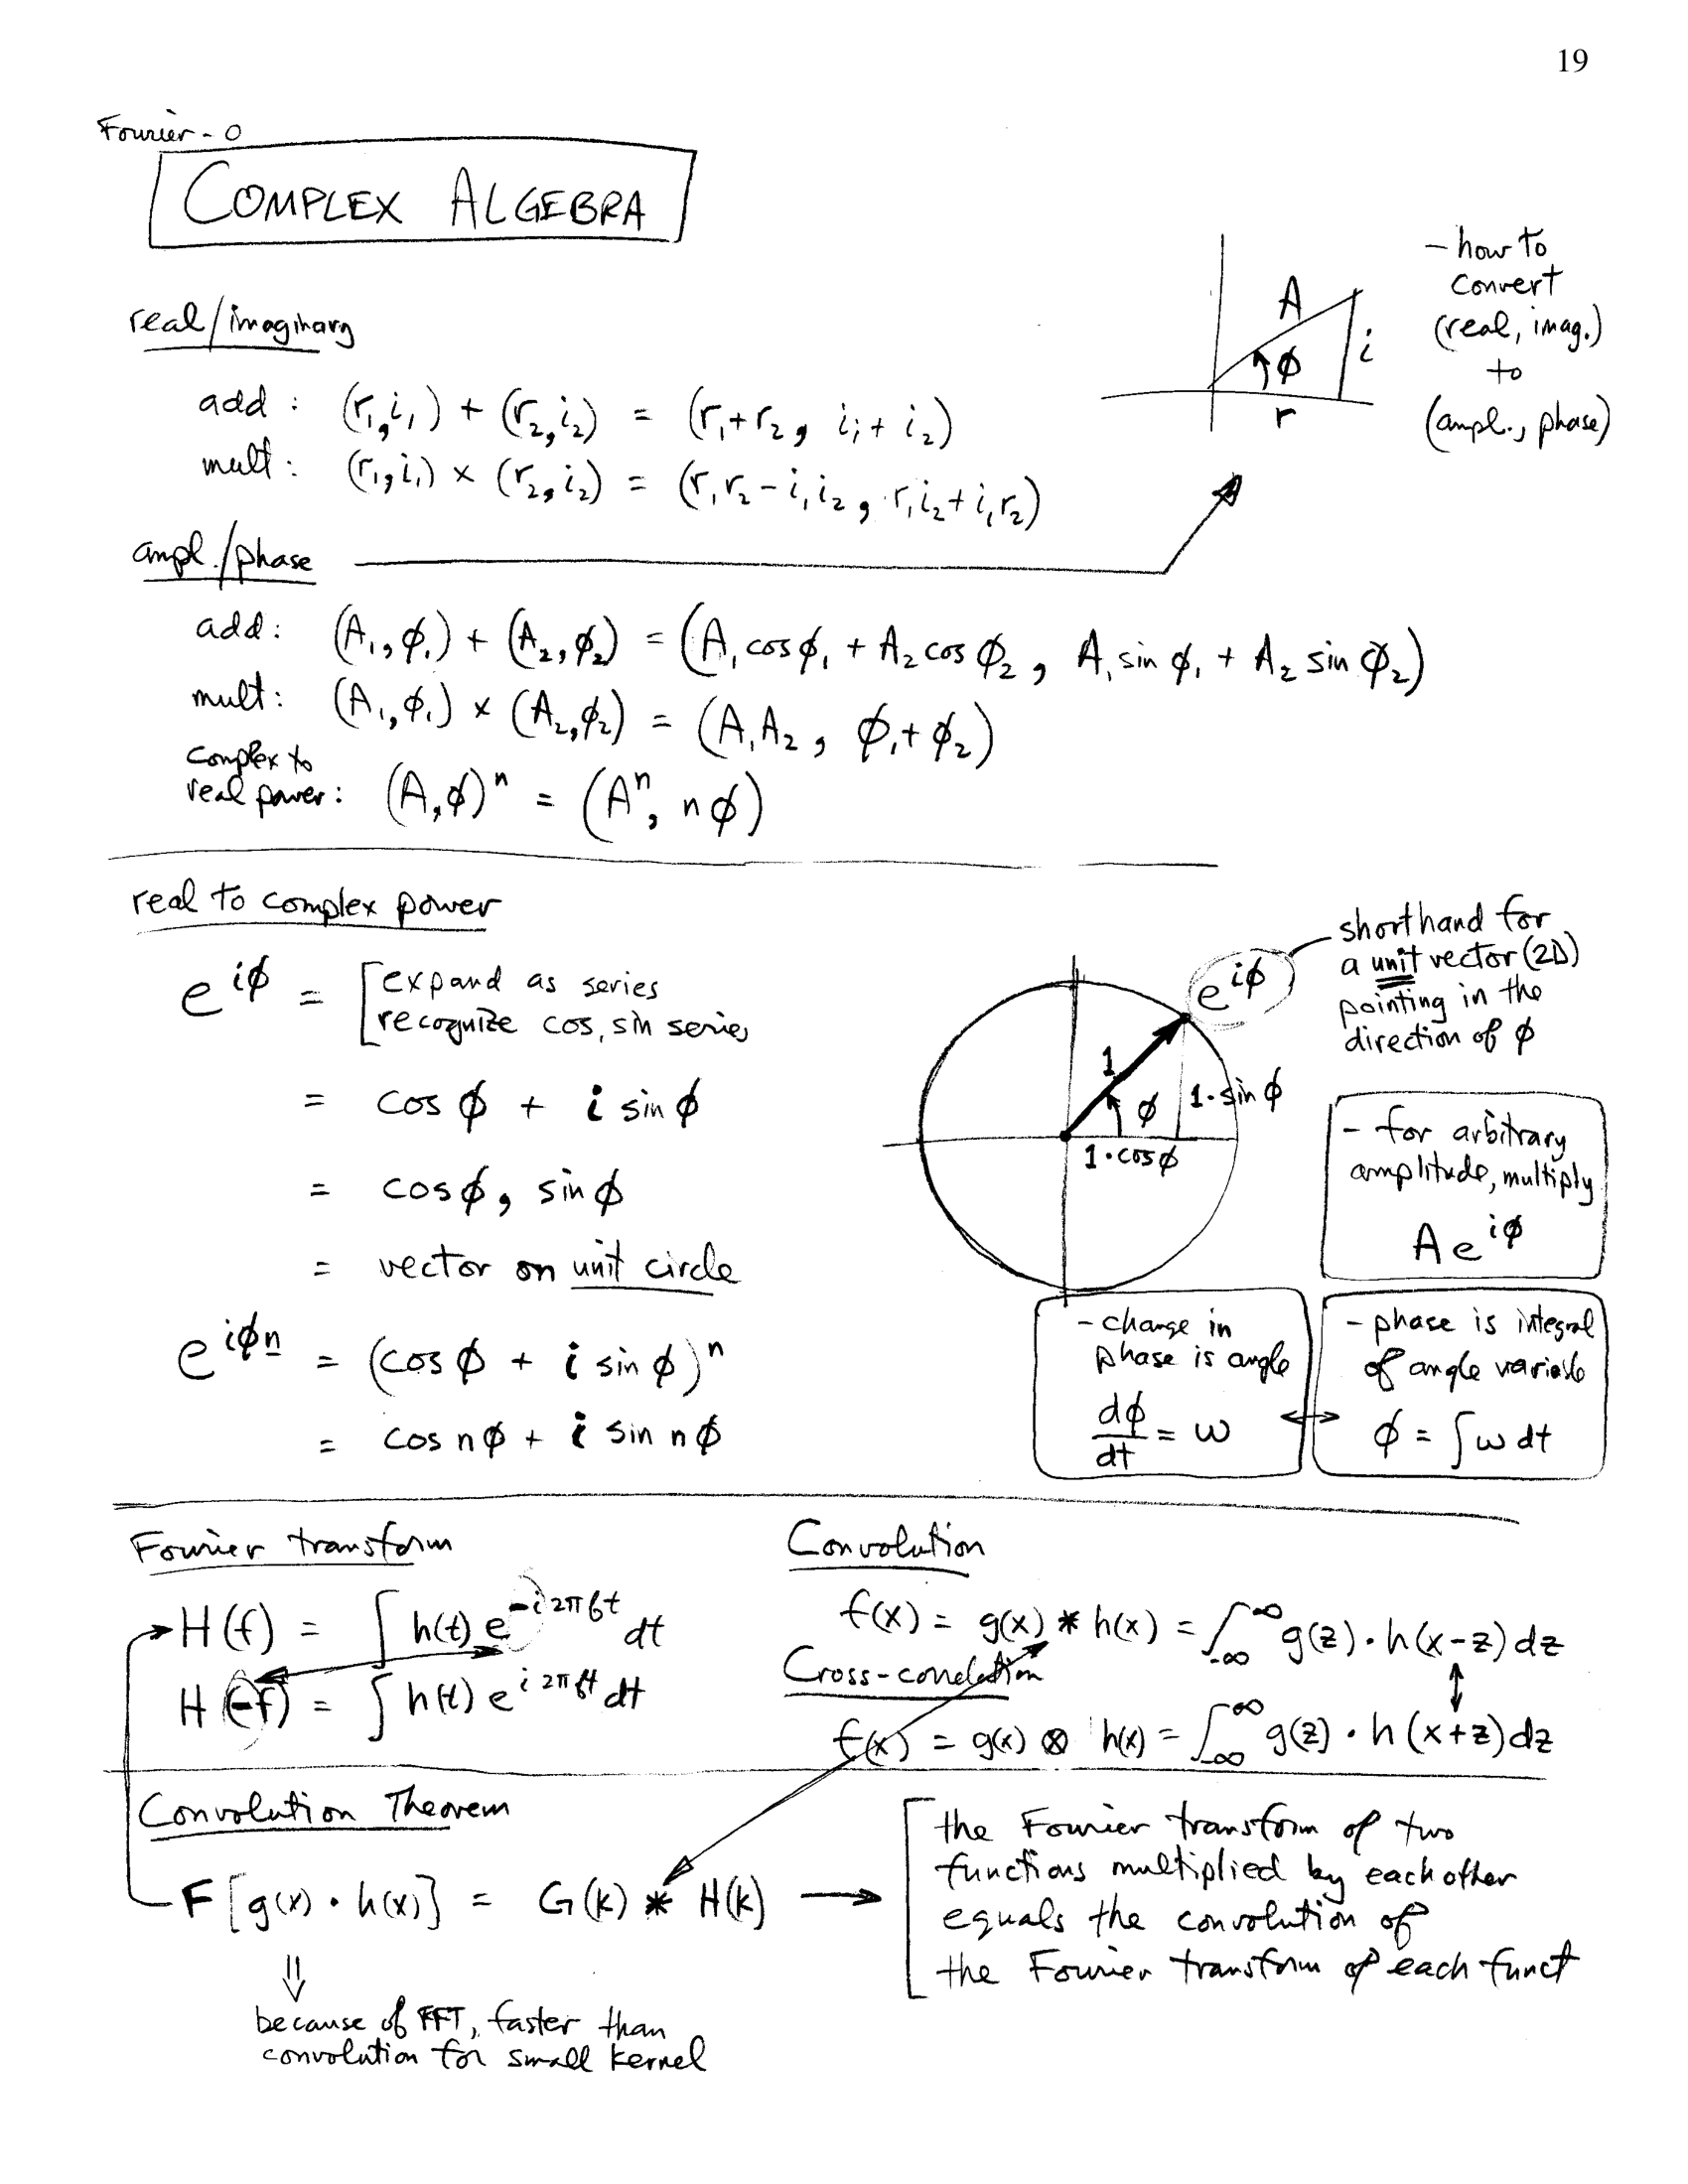 19
Fourier - 0
COMPLEX ALGEBRA
real/imaginary
add : (r₁, i₁) + (r₂, i₂) = (r₁+r₂, i₁+i₂)
mult : (r₁, i₁) × (r₂, i₂) = (r₁r₂ - i₁i₂, r₁i₂ + i₁r₂)
A
ϕ
i
r
- how to
convert
(real, imag.)
to
(ampl., phase)
ampl./phase
add: (A₁, ϕ₁) + (A₂, ϕ₂) = (A₁ cos ϕ₁ + A₂ cos ϕ₂, A₁ sin ϕ₁ + A₂ sin ϕ₂)
mult: (A₁, ϕ₁) × (A₂, ϕ₂) = (A₁A₂, ϕ₁+ϕ₂)
complex to
real power: (A, ϕ)ⁿ = (Aⁿ, nϕ)
real to complex power
e^{iϕ} = [expand as series
recognize cos, sin series
= cos ϕ + i sin ϕ
= cos ϕ, sin ϕ
= vector on unit circle
e^{iϕn} = (cos ϕ + i sin ϕ)ⁿ
= cos nϕ + i sin nϕ
e^{iϕ}
1
ϕ
1·sin ϕ
1·cos ϕ
shorthand for
a unit vector (2D)
pointing in the
direction of ϕ
- for arbitrary
amplitude, multiply
A e^{iϕ}
- change in
phase is angle
dϕ/dt = ω
↔
- phase is integral
of angle variable
ϕ = ∫ω dt
Fourier transform
H(f) = ∫ h(t) e^{-i2πft} dt
H(-f) = ∫ h(t) e^{i2πft} dt
Convolution
f(x) = g(x) * h(x) = ∫_{-∞}^{∞} g(z) · h(x-z) dz
Cross-correlation
f(x) = g(x) ⊗ h(x) = ∫_{-∞}^{∞} g(z) · h(x+z) dz
Convolution Theorem
F[g(x) · h(x)] = G(k) * H(k) →
the Fourier transform of two
functions multiplied by each other
equals the convolution of
the Fourier transform of each funct
⇓
because of FFT, faster than
convolution for small kernel